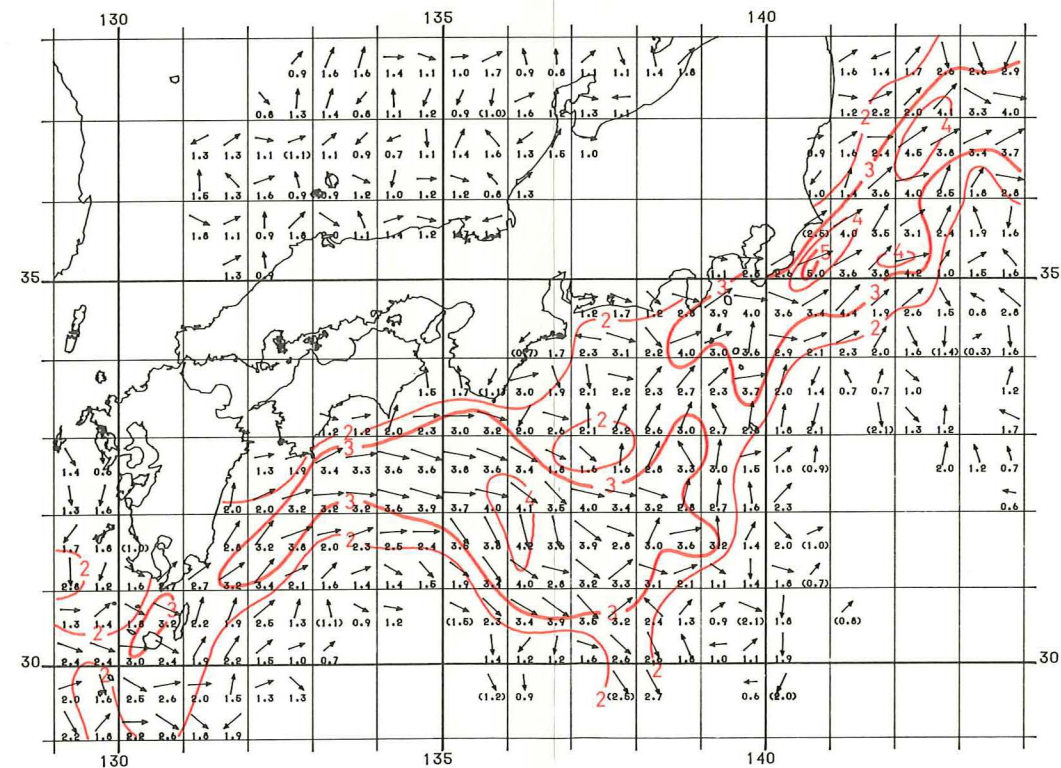 130 135 140
0.9 1.6 1.6 1.4 1.1 1.0 1.7 0.9 0.8 1.1 1.4 1.8 1.6 1.4 1.7 2.6 2.6 2.9
0.8 1.3 1.4 0.8 1.1 1.2 0.9 (1.0) 1.6 1.2 1.3 1.1 1.2 2.2 2.0 4.1 3.3 4.0
2 4
1.3 1.3 1.1 (1.1) 1.1 0.9 0.7 1.1 1.4 1.6 1.3 1.5 1.0 0.9 1.6 2.4 4.5 3.8 3.4 3.7
3
1.5 1.3 1.6 0.9 0.9 1.2 1.0 1.2 1.2 0.8 1.3 1.0 1.4 3.6 4.0 2.5 1.8 2.8
4
1.8 1.1 0.9 1.8 1.1 1.4 1.2 (2.5) 4.0 3.5 3.1 2.4 1.9 1.6
5 4
35 1.3 0.9 1.1 2.6 2.6 5.0 3.6 3.8 4.2 1.0 1.5 1.6 35
3 3
1.2 1.7 1.2 2.8 3.9 4.0 3.6 3.4 4.4 1.9 2.6 1.5 0.8 2.8
2 2
(0.7) 1.7 2.3 3.1 2.2 4.0 3.0 3.6 2.9 2.1 2.3 2.0 1.6 (1.4) (0.3) 1.6
1.5 1.7 (1.1) 3.0 1.9 2.1 2.2 2.3 2.7 2.3 3.7 2.0 1.4 0.7 0.7 1.0 1.2
2 2
1.2 1.2 2.0 2.3 3.0 3.2 2.0 2.6 2.1 2.2 2.6 3.0 2.7 2.8 1.8 2.1 (2.1) 1.3 1.2 1.7
3
1.4 1.3 1.9 3.4 3.3 3.6 3.6 3.8 3.6 3.4 1.8 1.6 1.6 2.8 3.3 3.0 1.5 1.8 (0.9) 2.0 1.2 0.7
3 4 3
1.3 1.6 2.0 2.0 3.2 3.2 3.6 3.9 3.7 4.0 4.1 3.5 4.0 3.4 3.2 2.8 2.7 1.6 2.3 0.6
2
1.7 1.8 (1.0) 2.8 3.2 3.8 2.0 2.3 2.5 2.4 3.5 3.8 4.2 3.6 3.9 2.8 3.0 3.6 3.2 1.4 2.0 (1.0)
2
2.8 1.2 1.6 2.7 2.7 3.2 3.4 2.1 1.6 1.4 1.4 1.5 1.9 3.4 4.0 2.8 3.2 3.3 3.1 2.1 1.1 1.4 1.8 (0.7)
3 3
1.3 1.4 1.8 3.2 2.2 1.9 2.5 1.3 (1.1) 0.9 1.2 (1.5) 2.3 3.4 3.9 3.5 3.2 2.4 1.3 0.9 (2.1) 1.8 (0.8)
2
30 2.4 2.4 3.0 2.4 1.9 2.2 1.5 1.0 0.7 1.4 1.2 1.2 1.6 2.6 2.6 1.8 1.0 1.1 1.9 30
2 2
2.0 1.6 2.5 2.6 2.0 1.5 1.3 1.3 (1.2) 0.9 2 (2.5) 2.7 0.6 (2.0)
2.2 1.8 2.2 2.6 1.8 1.9
130 135 140